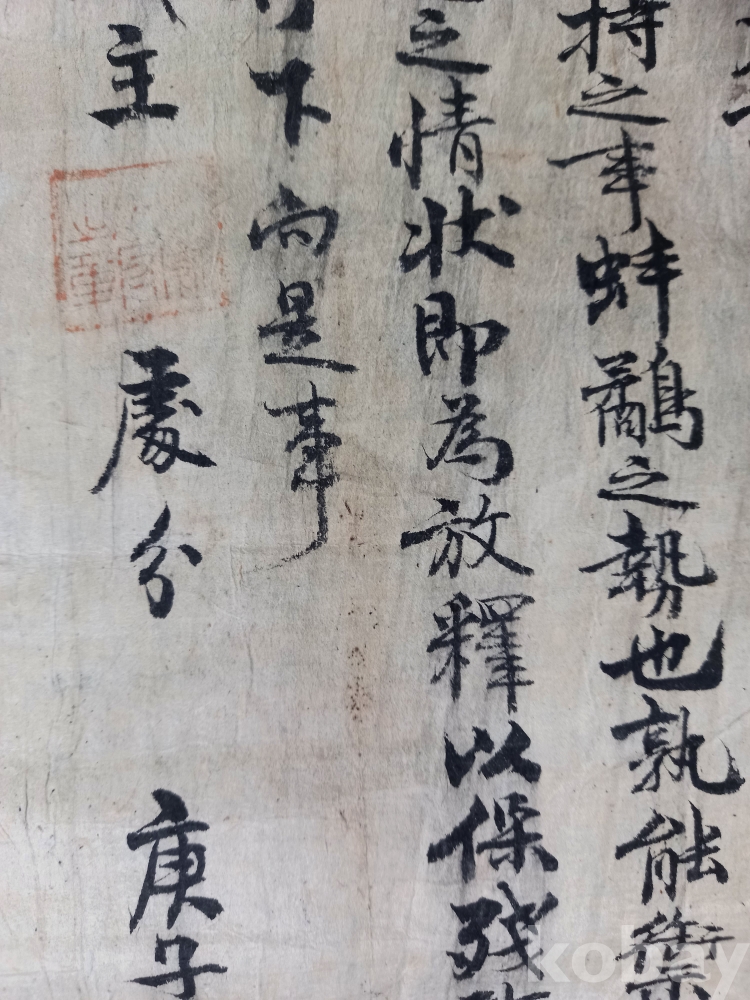 持之事蚌鷸之勢也孰能禦
之情狀即為放釋以保殘
下向是事
主
處分
庚子
kobay